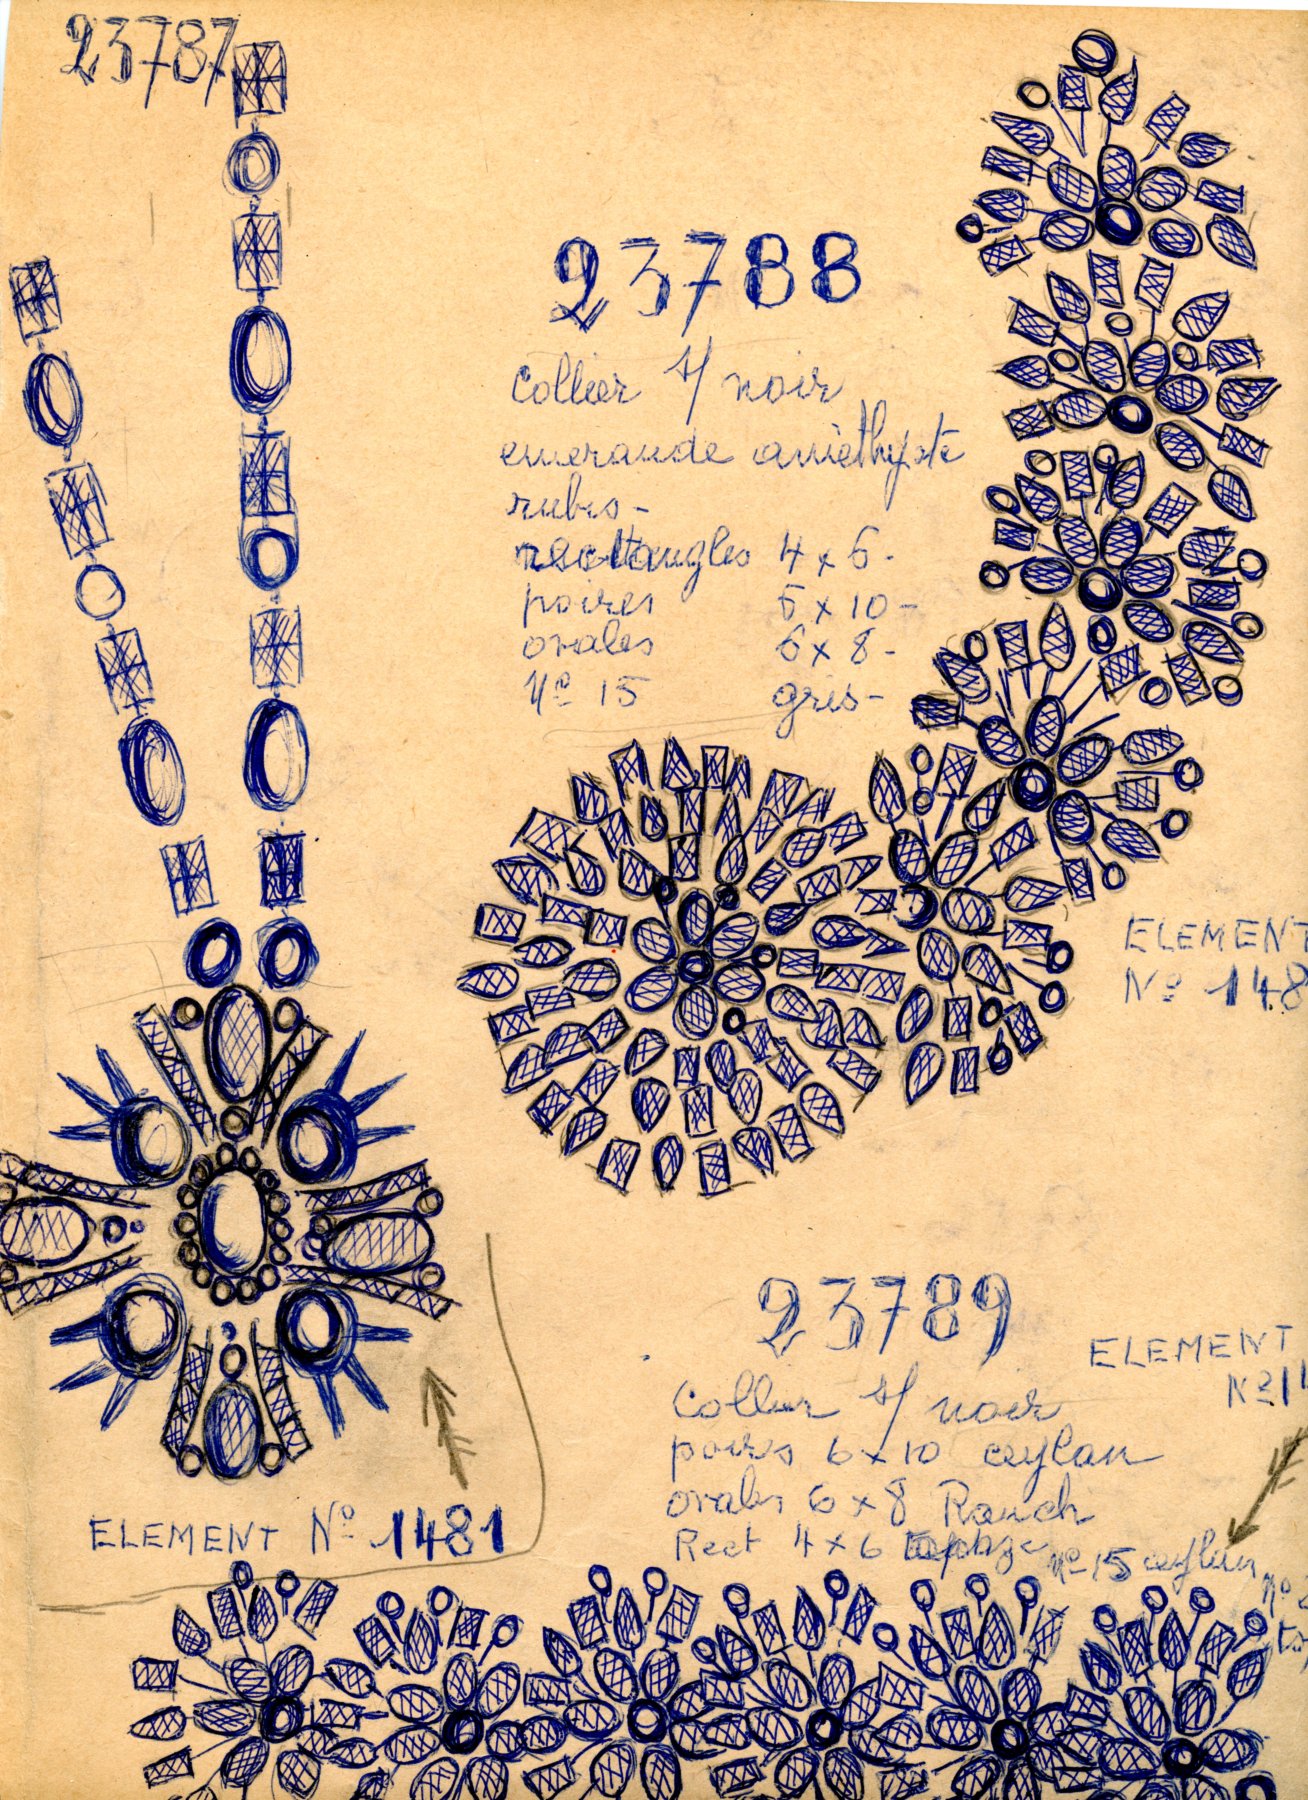 23787
23788
Collier s/ noir
emeraude amethyste
rubis -
rectangles 4 x 6 -
poires 6 x 10 -
ovales 6 x 8 -
Nº 15 gris -
ELEMENT
Nº 148
ELEMENT Nº 1481
23789
ELEMENT
Nº 11
Collier s/ noir
poires 6 x 10 ceylan
ovales 6 x 8 Rauch
Rect 4 x 6 topaze
Nº 15 ceylan
Nº 2